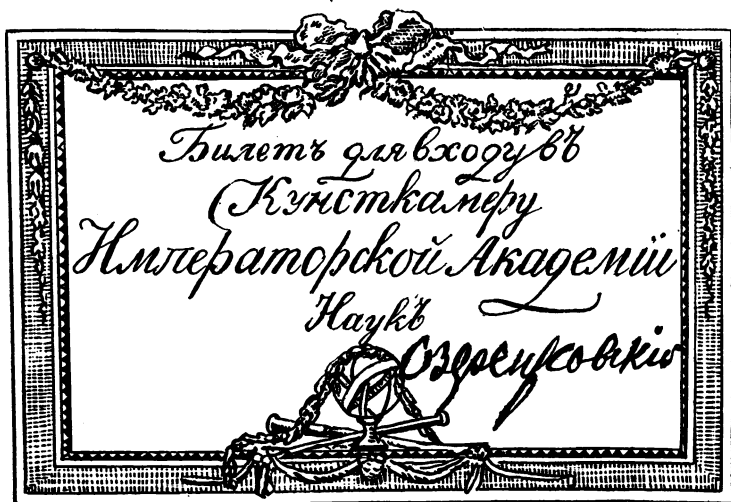 Билетъ для входу въ
Кунсткамеру
Императорской Академіи
Наукъ